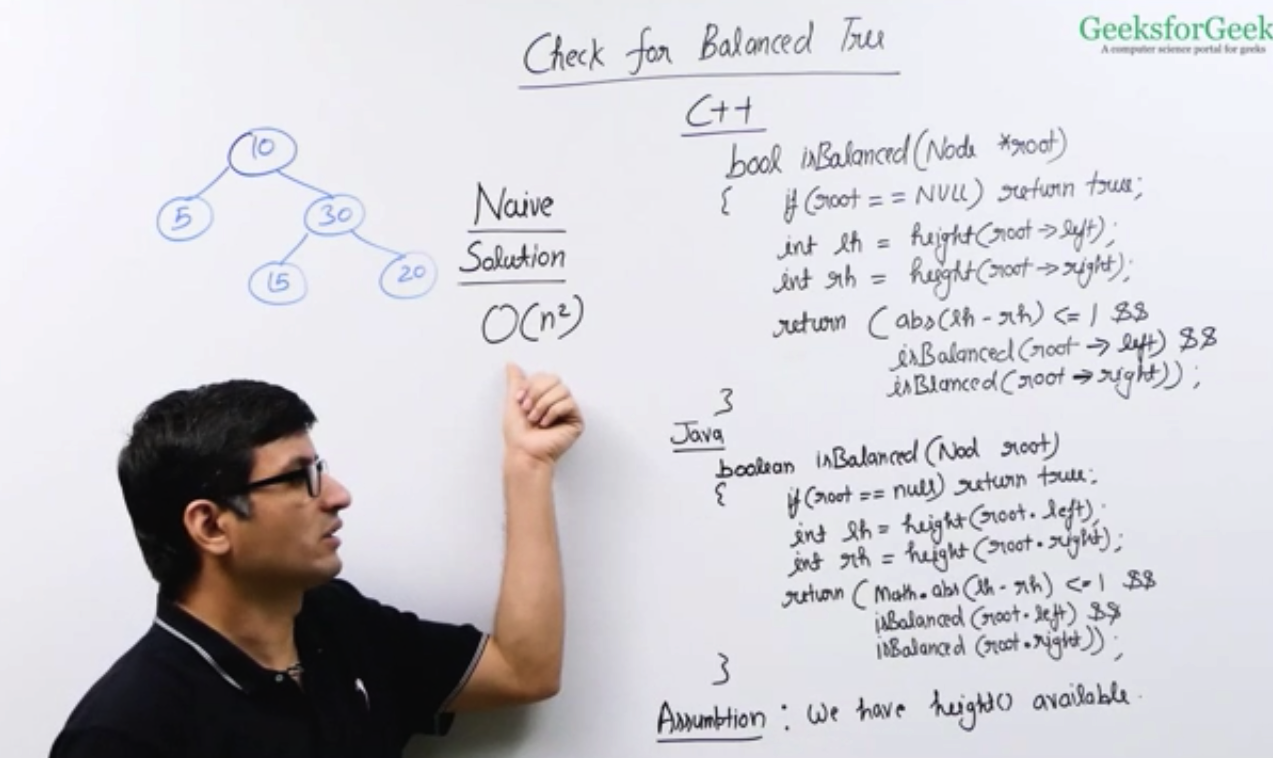 GeeksforGeek
A computer science portal for geeks
Check for Balanced Tree
10
5
30
15
20
Naive
Solution
O(n²)
C++
bool isBalanced(Node *root)
{ if(root == NULL) return true;
int lh = height(root->left);
int rh = height(root->right);
return (abs(lh - rh) <= 1 &&
isBalanced(root->left) &&
isBlanced(root->right));
}
Java
boolean isBalanced(Nod root)
{ if(root == null) return true;
int lh = height(root.left);
int rh = height(root.right);
return (Math.abs(lh - rh) <= 1 &&
isBalanced(root.left) &&
isBalanced(root.right));
}
Assumption : We have height() available.